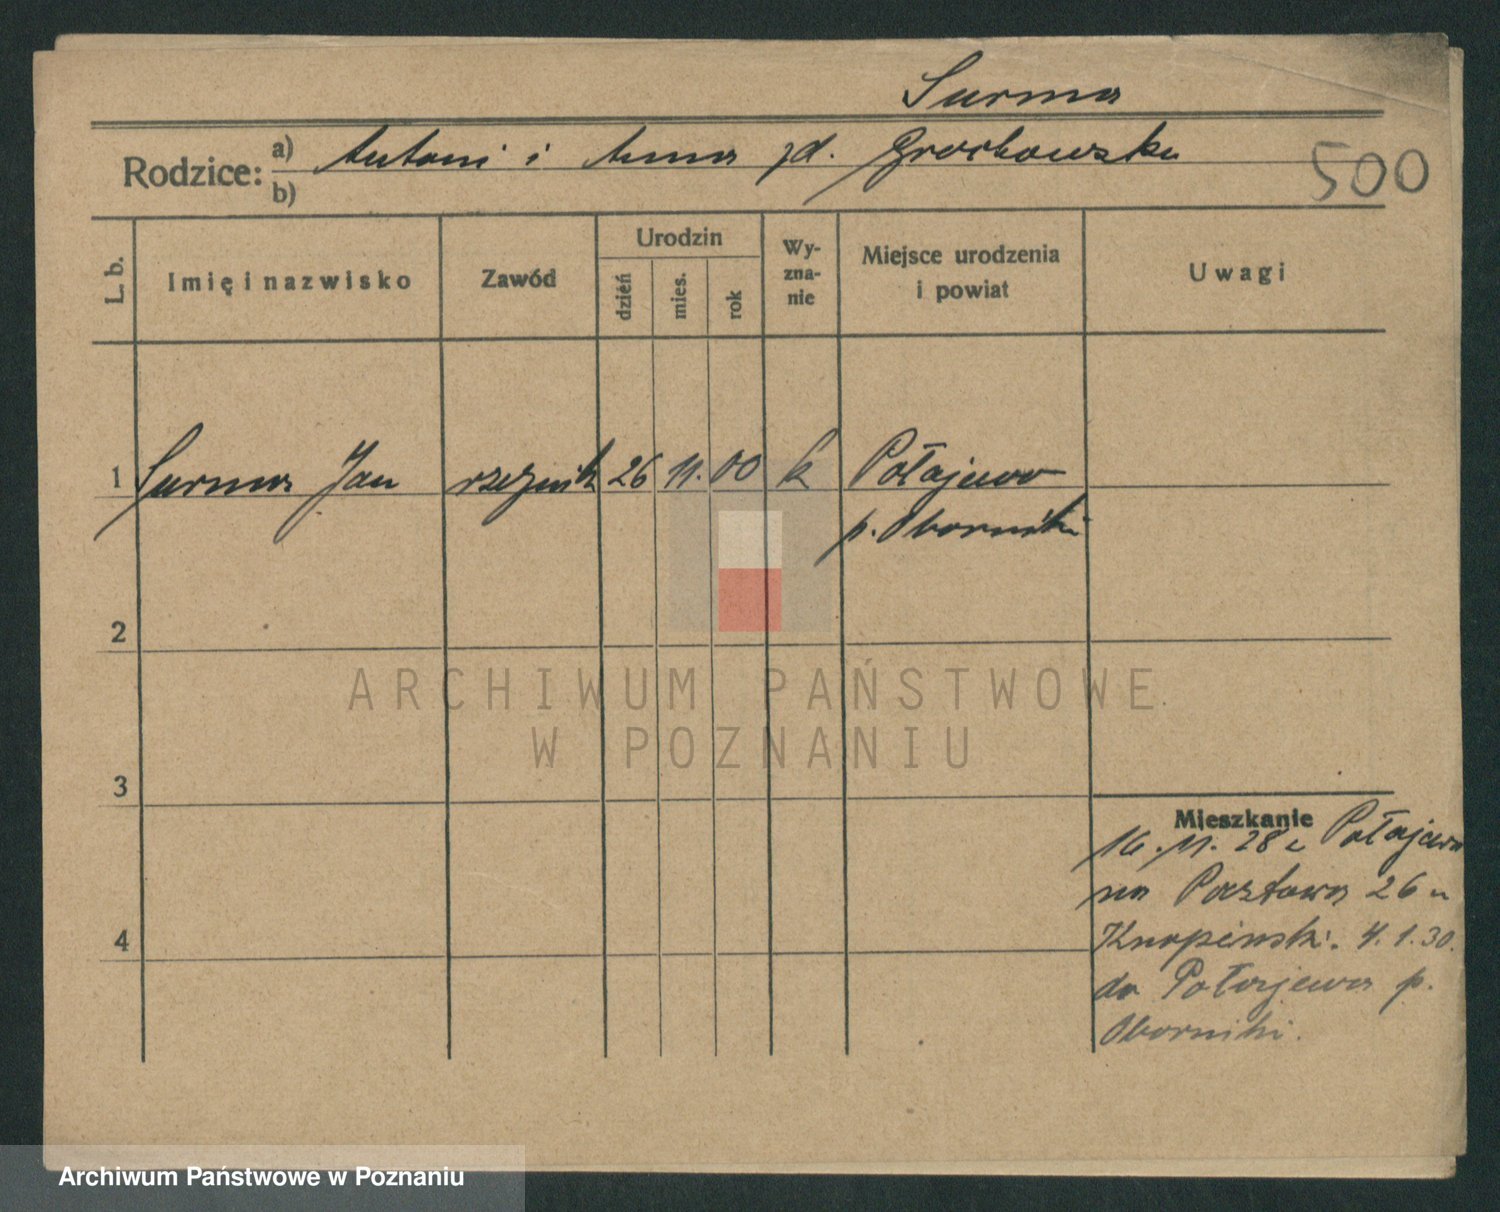 Surma
Rodzice: a) Antoni i Anna zd. Grochowska
b)
500
L. b.
Imię i nazwisko
Zawód
Urodzin
dzień
mies.
rok
Wy-
zna-
nie
Miejsce urodzenia
i powiat
Uwagi
1 Surma Jan rzeźnik 26 11. 00 k Połajewo
p. Oborniki
2
3
4
Mieszkanie
16. 11. 28 z Połajewa
na Pocztowa 26 u
Knapiński. 4.1.30.
do Połajewa p.
Oborniki.
ARCHIWUM PAŃSTWOWE
W POZNANIU
Archiwum Państwowe w Poznaniu